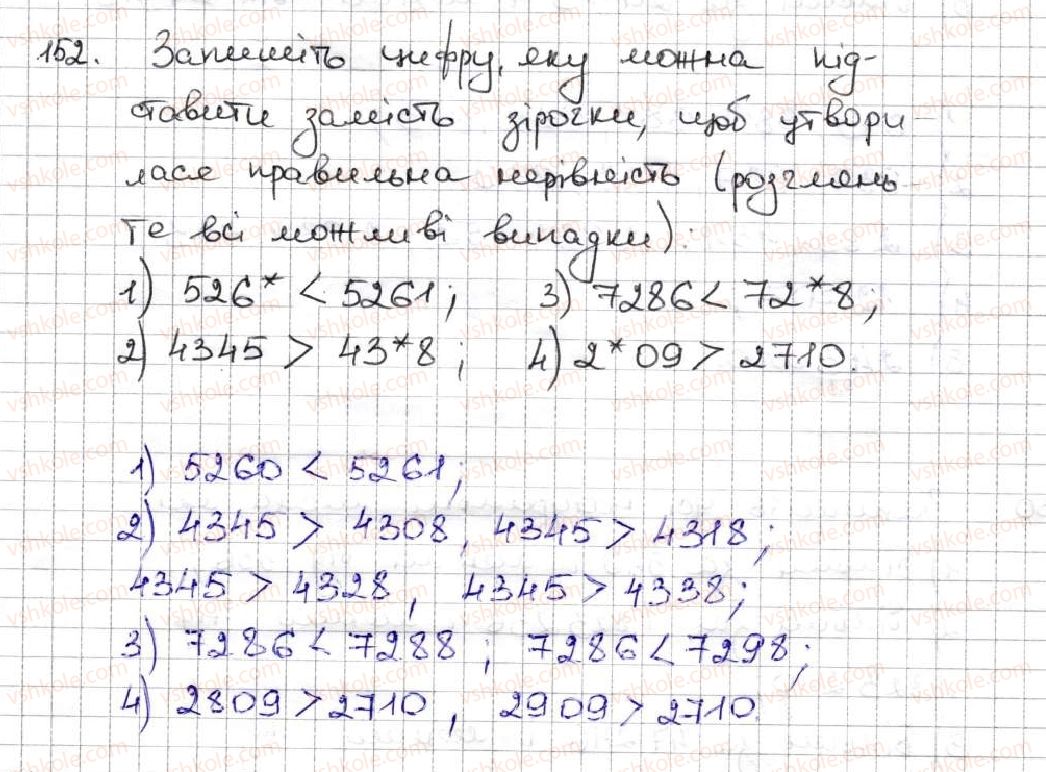 152. Запишіть цифру, яку можна під-
ставити замість зірочки, щоб утвори-
лася правильна нерівність (розглянь-
те всі можливі випадки):
1) 526* < 5261; 3) 7286 < 72*8;
2) 4345 > 43*8; 4) 2*09 > 2710.
1) 5260 < 5261;
2) 4345 > 4308, 4345 > 4318;
4345 > 4328, 4345 > 4338;
3) 7286 < 7288; 7286 < 7298;
4) 2809 > 2710, 2909 > 2710.